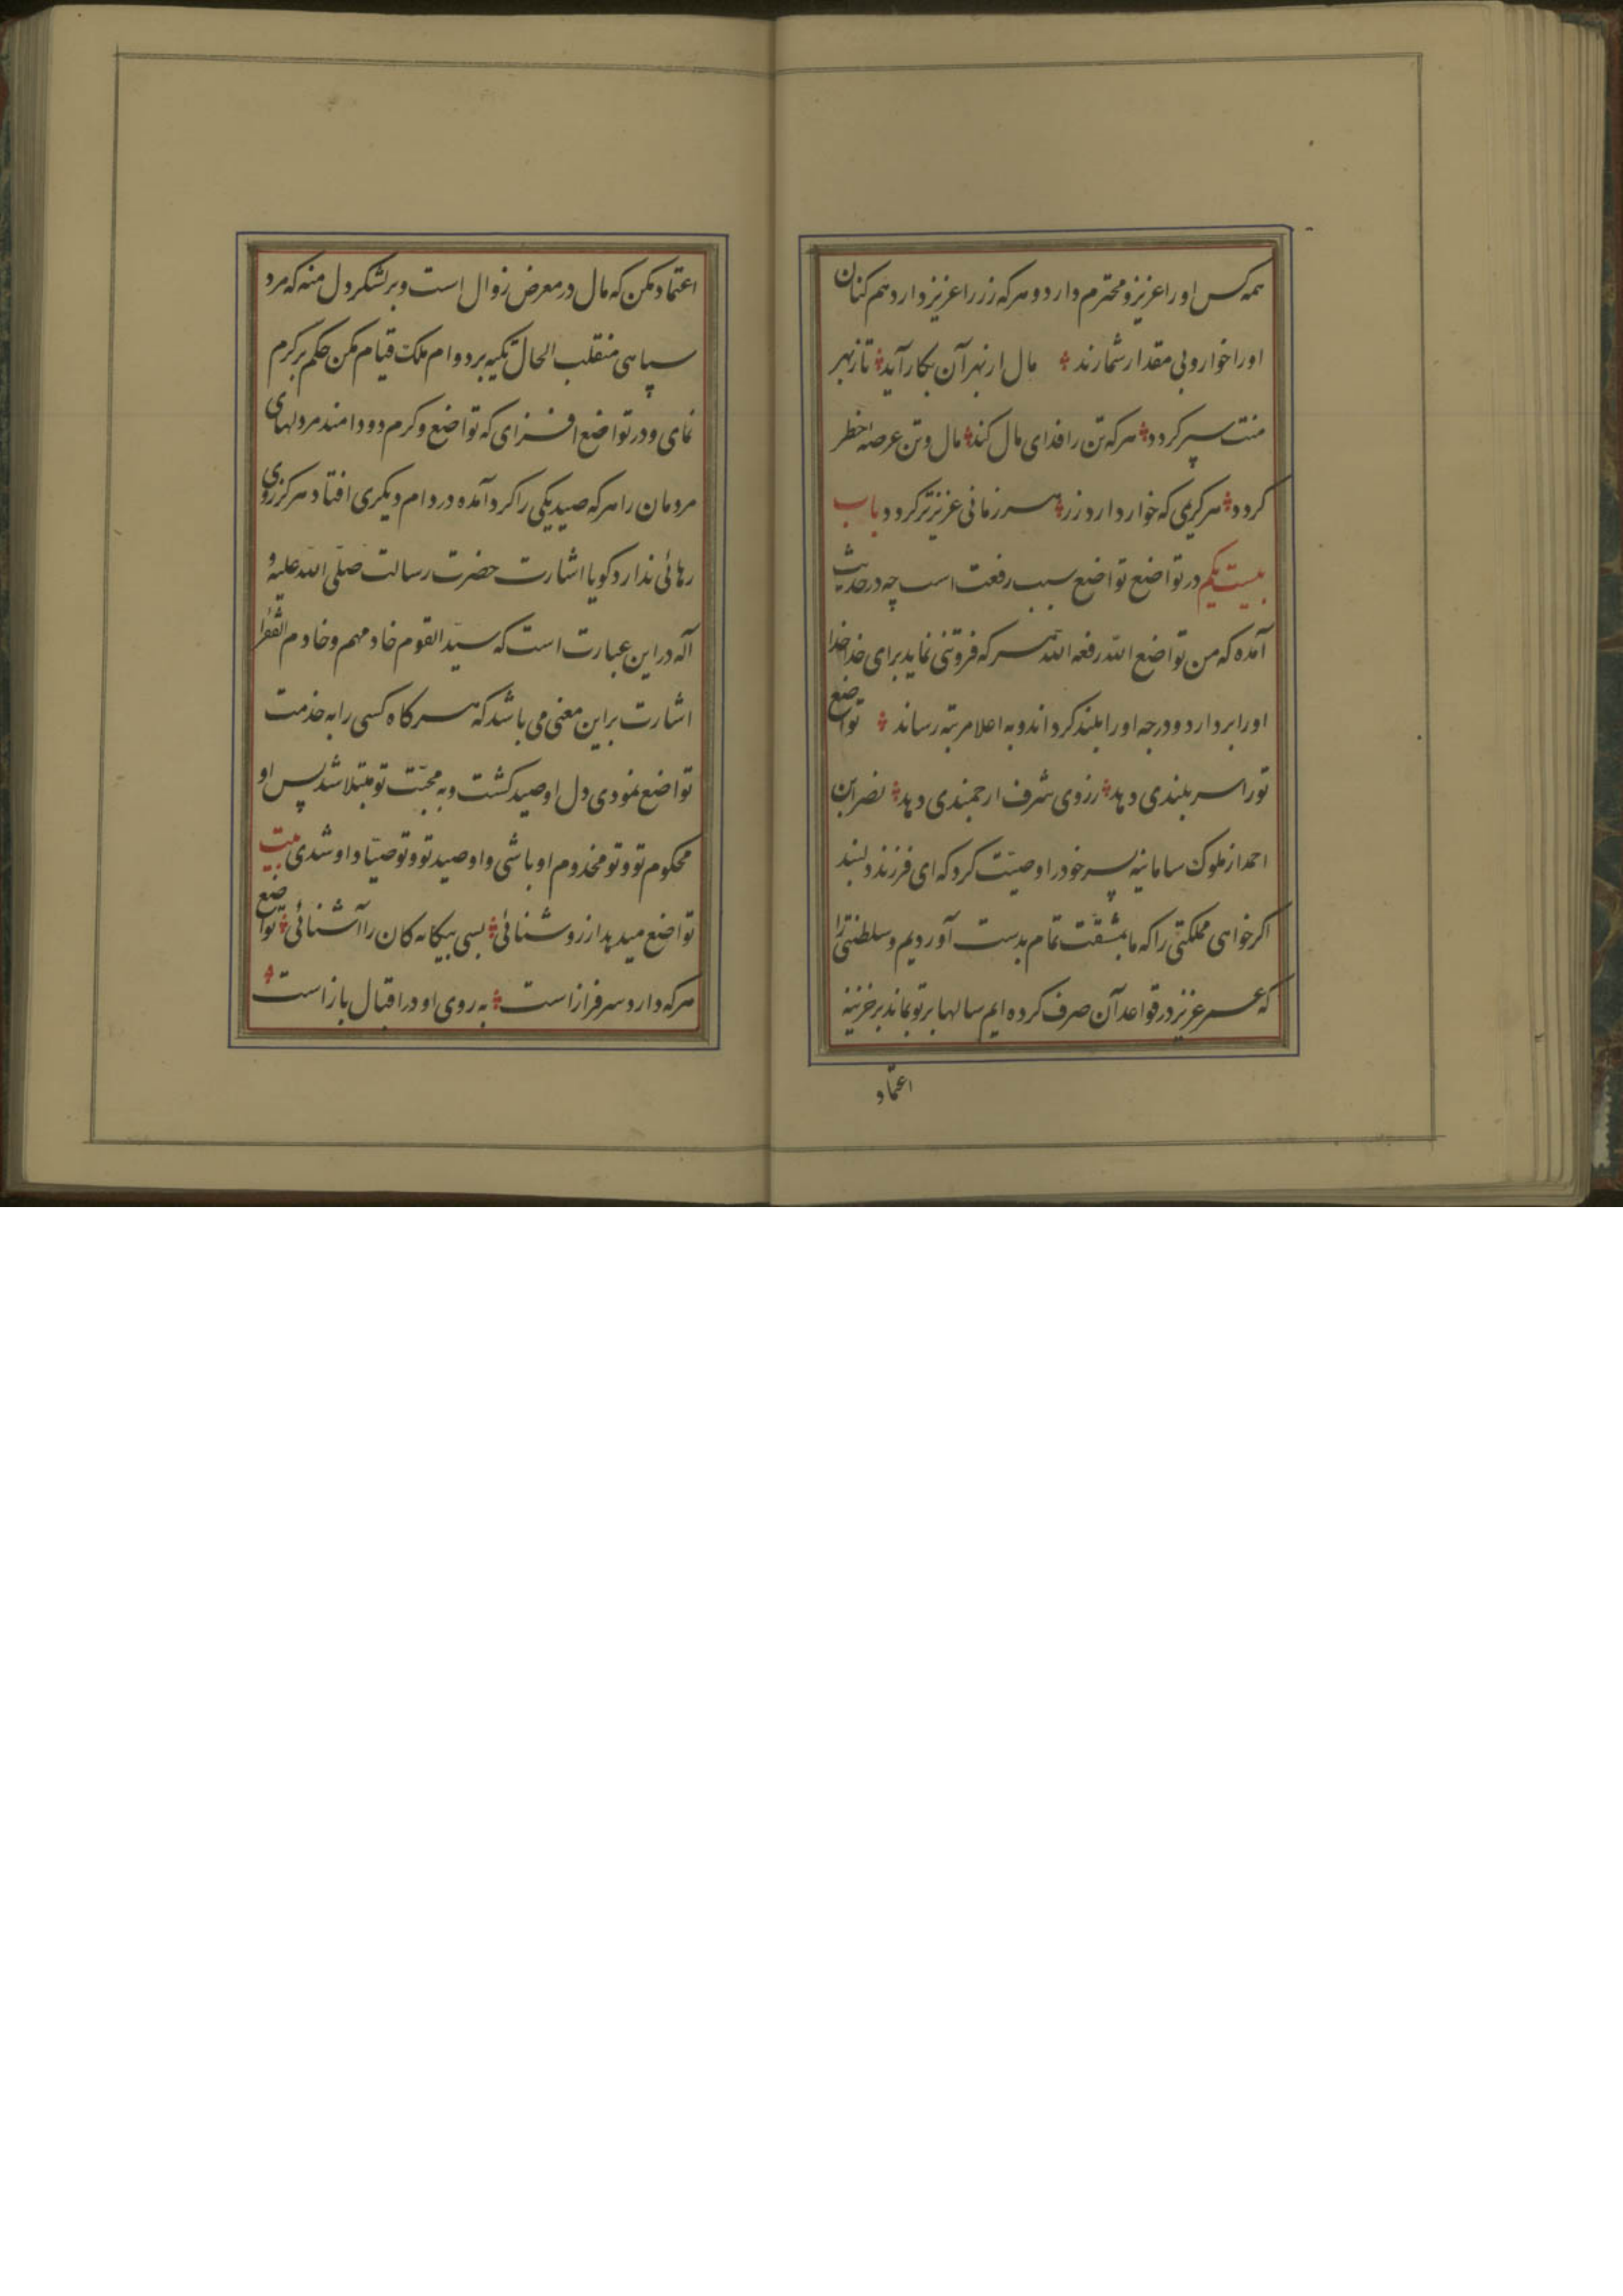 همه کس او را عزیز و محترم دارد و هر که زر را عزیز دارد همه کنان
اورا خوار و بی مقدار شمارند مال از بهر آن بکار آید تا ز بهر
منت سپر کردد هر که تن را فدای مال کند مال و تن عرصه خطر
کردد هر کریمی که خوار دارد زر هر زمانی عزیزتر کردد باب
بیست یکم در تواضع تواضع سبب رفعت است چه در حدیث
آمده که من تواضع الله رفعه الله هر که فروتنی نماید برای خدا خدا
اورا بردارد و درجه اورا بلند کرداند و به اعلا مرتبه رساند تواضع
تورا سر بلندی دهد ز روی شرف ارجمندی دهد نصر ابن
احمد از ملوک سامانیه پسر خود را وصیّت کرد که ای فرزند دلبند
اکر خواهی مملکتی را که ما بمشقّت تمام بدست آوردیم و سلطنتی را
که عمر عزیز در قواعد آن صرف کرده ایم سالها بر تو بماند بر خزینه
اعتماد
اعتماد مکن که مال در معرض زوال است و بر لشکر دل منه که مرد
سپاهی منقلب الحال تکیه بر دوام ملک قیام مکن حکم بر کرم
نمای و در تواضع افزای که تواضع و کرم دو دامند مر دلهای
مردمان را هر که صید یکی را کرد آمده در دام دیکری افتاد هرکز روی
رهائی ندارد کویا اشارت حضرت رسالت صلّی الله علیه و
آله در این عبارت است که سیّد القوم خادمهم و خادم الفقرا
اشارت براین معنی می باشد که هر کاه کسی را به خدمت
تواضع نمودی دل او صید کشت و به محبّت تو مبتلا شد پس او
محکوم تو و تو مخدوم او باشی و او صید تو و تو صیّاد او شدی بیت
تواضع میدهد از روشنائی بسی بیکانه کان را آشنائی تواضع
هر که دارد سرفراز است به روی او در اقبال باز است